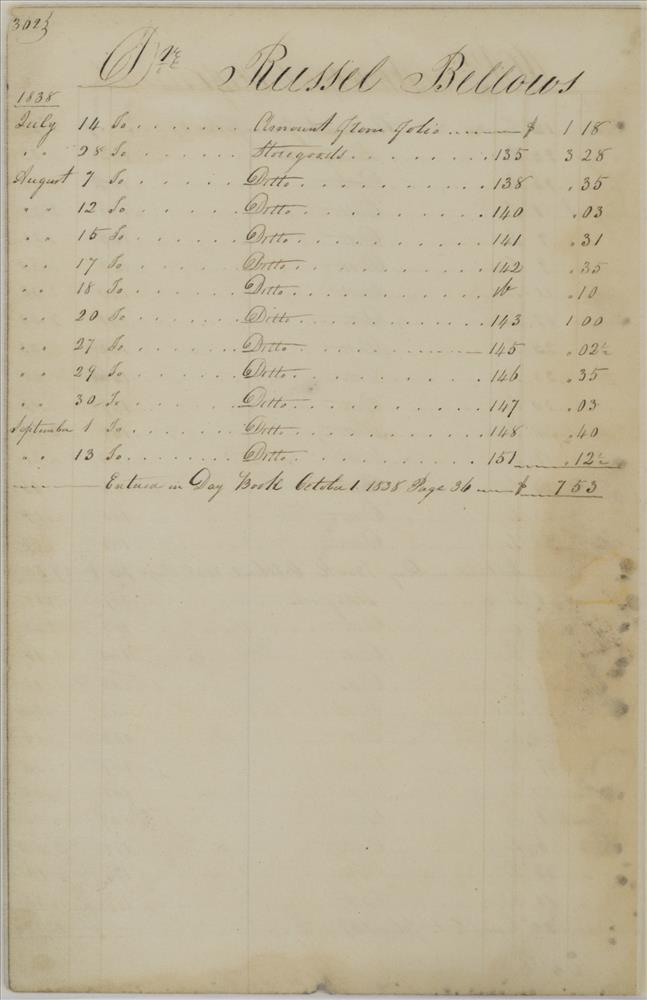 302½
Dr. Russel Bellows
1838
July 14 To . . . . . . . Amount from folio $ 1 18
" " 28 To . . . . . . Storegoods . . . . . . . 135 3 28
August 7 To . . . . . . Ditto . . . . . . . . . . 138 . 35
" " 12 To . . . . . . Ditto . . . . . . . . . . 140 . 03
" " 15 To . . . . . . Ditto . . . . . . . . . . 141 . 31
" " 17 To . . . . . . Ditto . . . . . . . . . . 142 . 35
" " 18 To . . . . . . Ditto . . . . . . . . . . ib . 10
" " 20 To . . . . . . Ditto . . . . . . . . . . 143 1 00
" " 27 To . . . . . . Ditto . . . . . . . 145 . 02½
" " 29 To . . . . . . Ditto . . . . . . . . . . 146 . 35
" " 30 To . . . . . . Ditto . . . . . . . . . . 147 . 03
September 1 To . . . . . . Ditto . . . . . . . . . . 148 . 40
" " 13 To . . . . . . Ditto . . . . . . . . . . 151 . 12½
Entered in Day Book October 1 1838 Page 36 $ 7 53